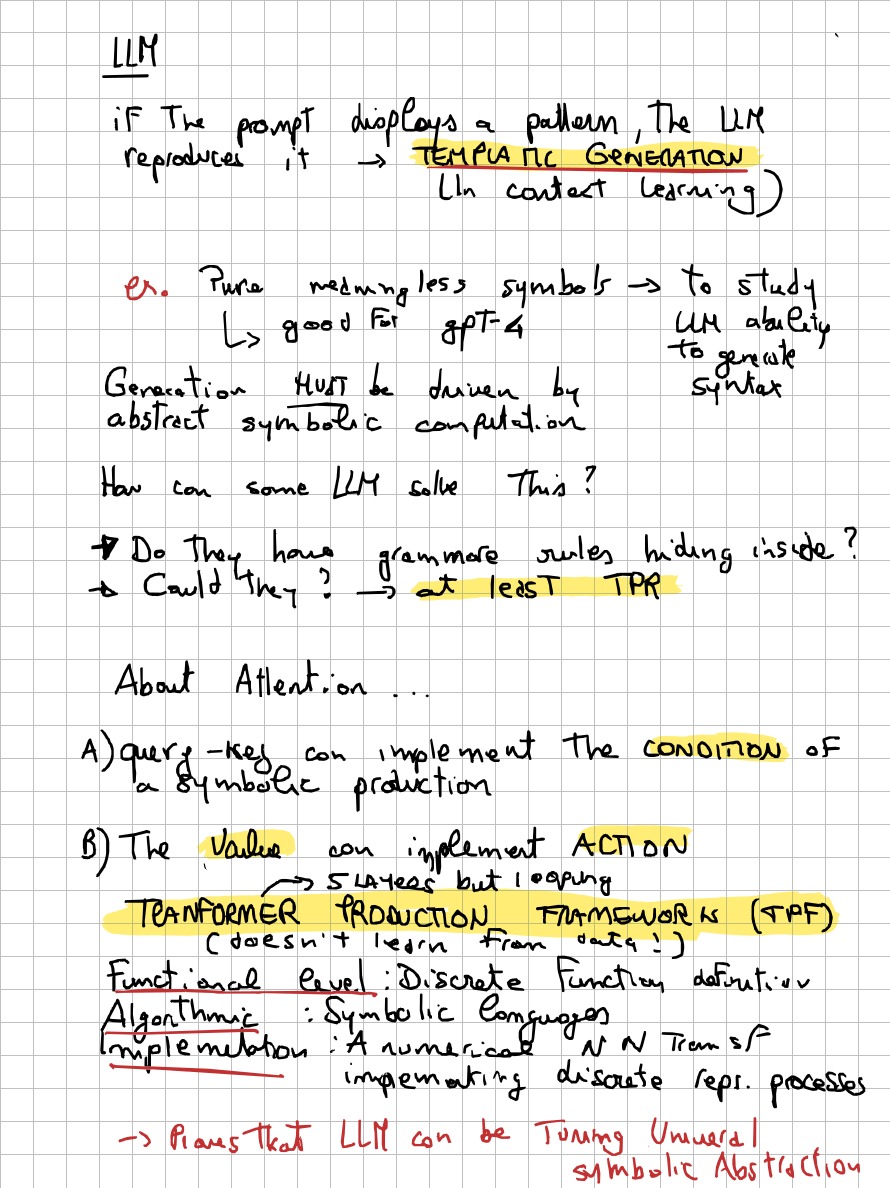 LLM
if The prompt displays a pattern, The LLM
reproduces it → TEMPLATIC GENERATION
(In context learning)
ex. Pure meaningless symbols → to study
↳ good For gpT-4 LLM ability
to generate
Generation MUST be driven by syntax
abstract symbolic computation
How can some LLM solve This?
→ Do They have grammare rules hiding inside?
→ Could they? → at leasT TPR
About Attention ...
A) query-key can implement The CONDITION of
a symbolic production
B) The Value can implement ACTION
→ 5 LAYERS but looping
TRANFORMER PRODUCTION FRAMEWORK (TPF)
(doesn't learn from data!)
Functional level : Discrete Function definition
Algorithmic : Symbolic languages
Implemetation : A numerical NN Transf
implementing discrete repr. processes
→ Proves that LLM can be Turing Universal
symbolic Abstraction